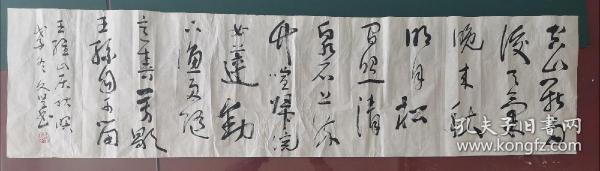 空山新雨
後天氣
晚来秋
明月松
間照清
泉石上流
竹喧歸浣
女蓮動
下漁舟隨
意春芳歇
王孫自可留
王維山居秋暝
戊子冬
孔夫子旧书网
www.kongfz.com